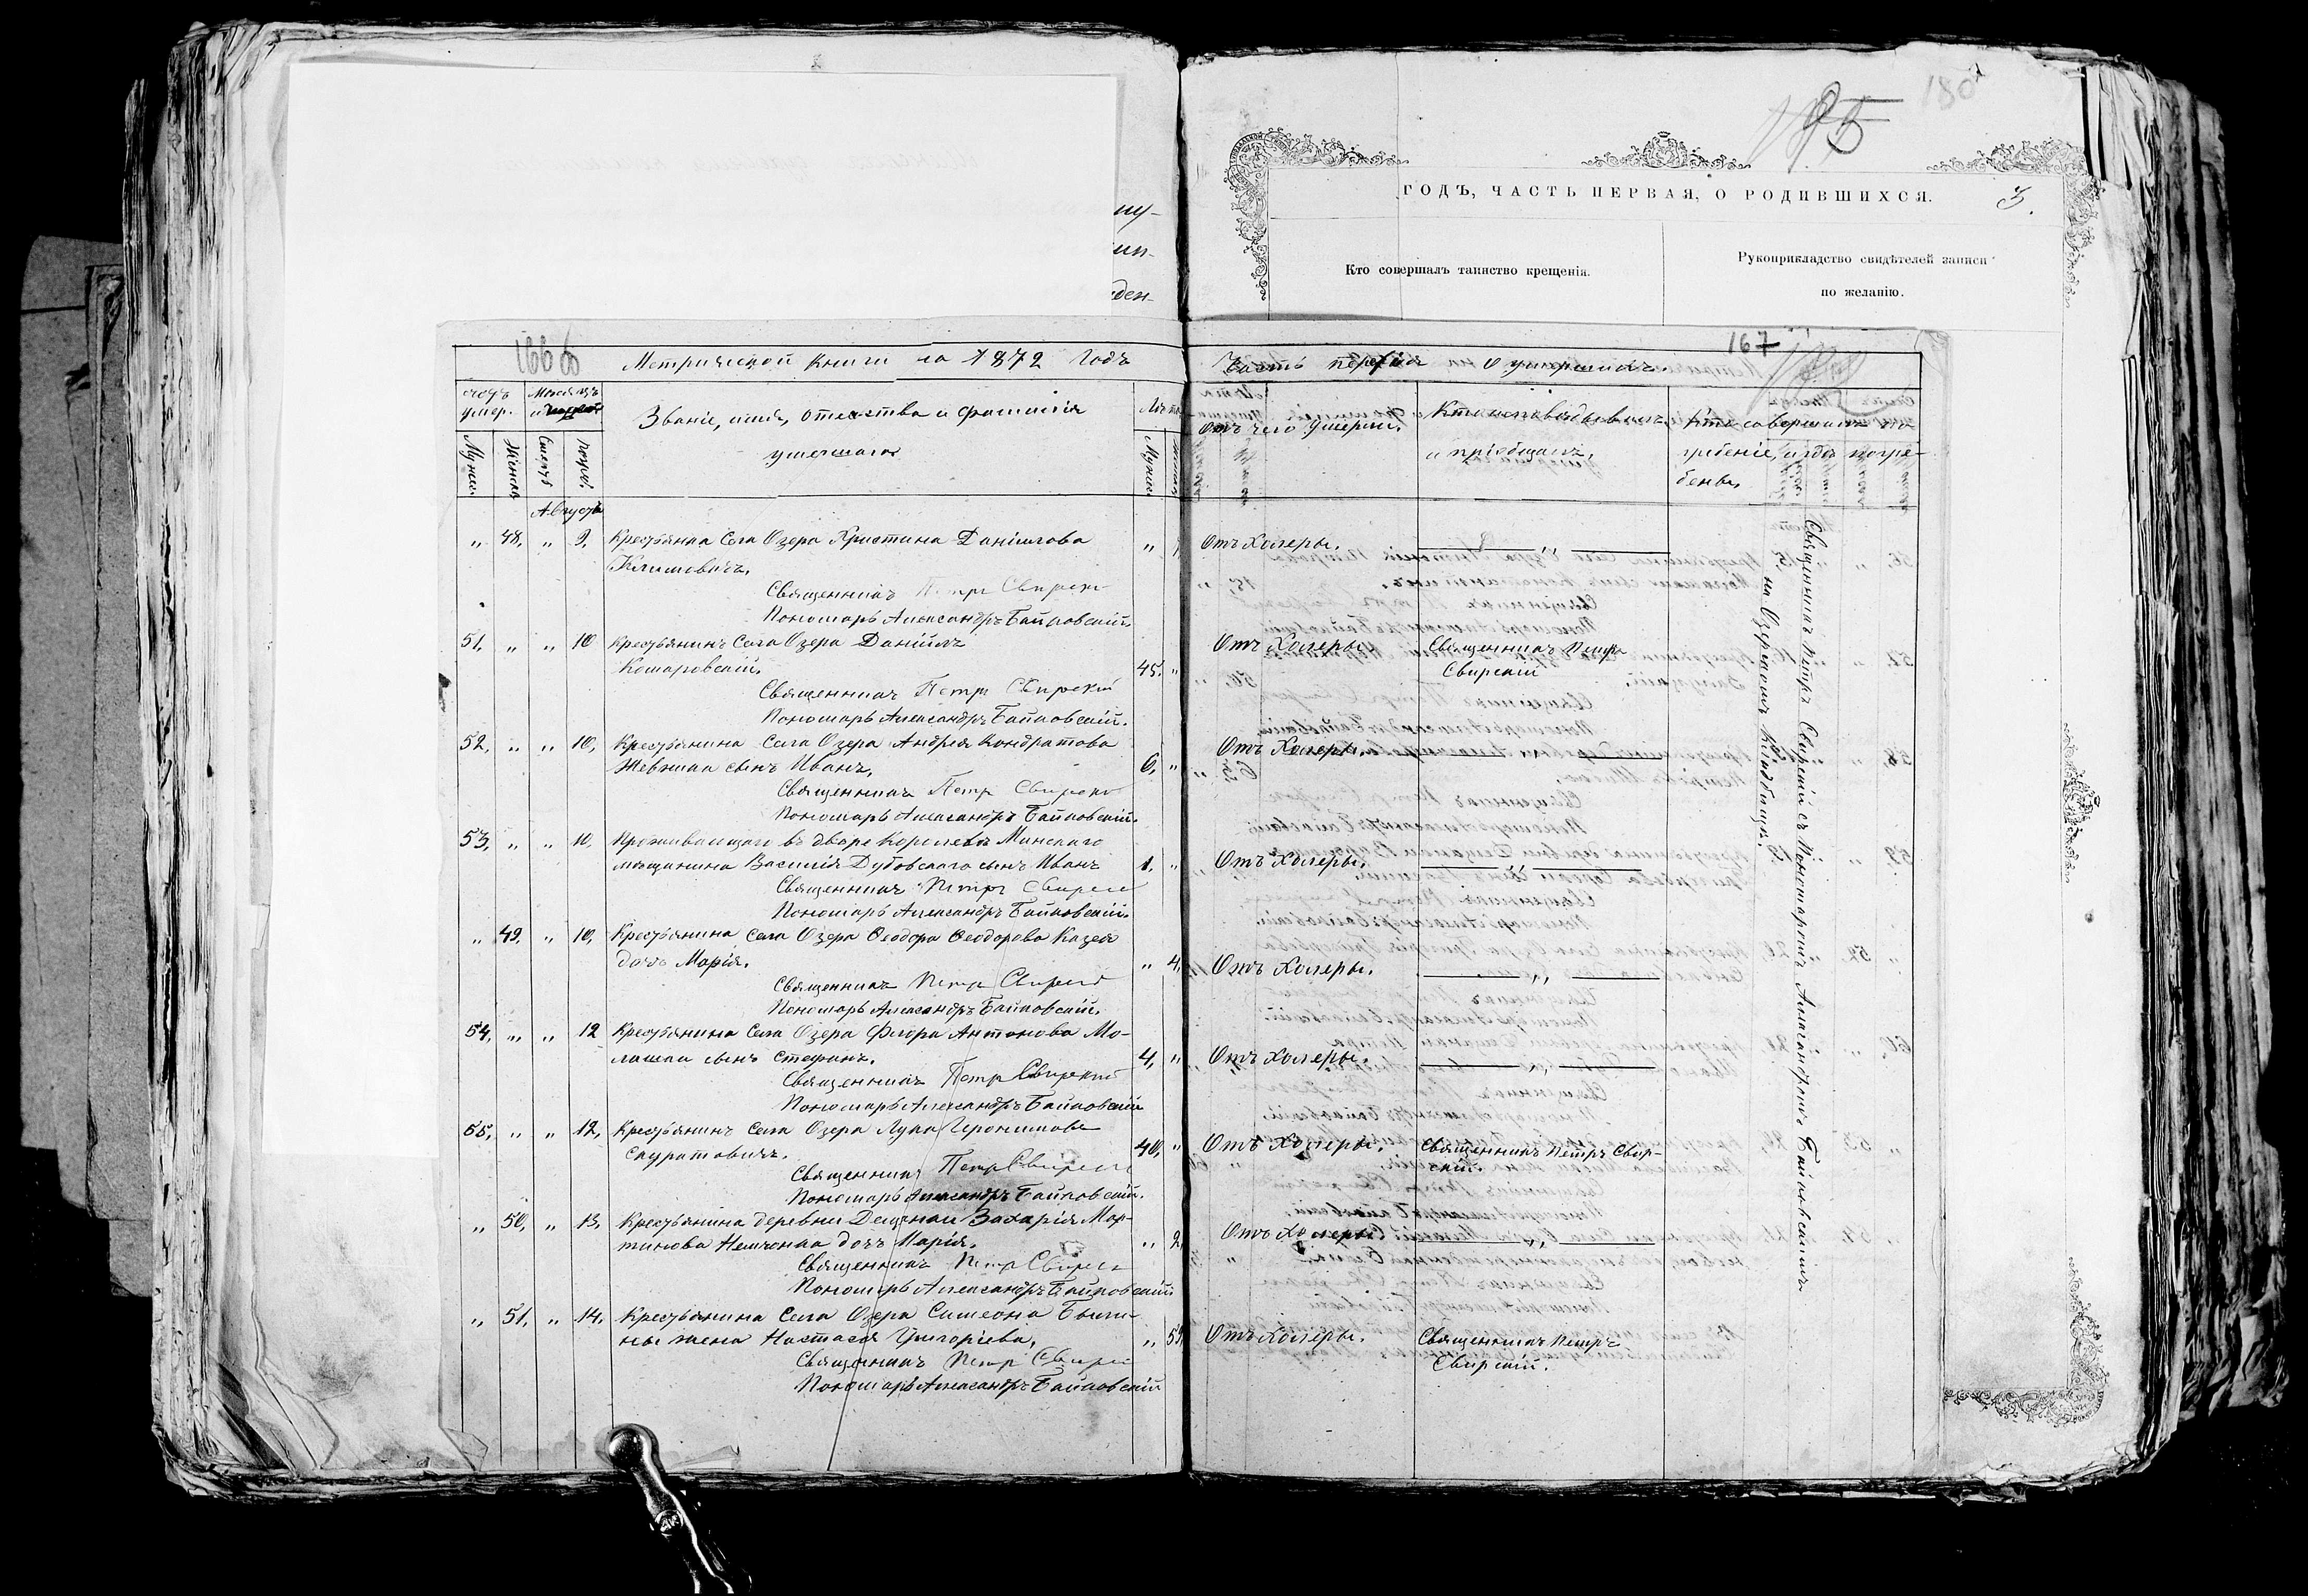 185
180
ГОДЪ, ЧАСТЬ ПЕРВАЯ, О РОДИВШИХСЯ.
3.
Кто совершалъ таинство крещенія.
Рукоприкладство свидѣтелей записи
по желанію.
ну-
ден-
166
Метрической книги на 1872 Годъ
167
Часть о умершихъ.
Счетъ умер.
Мѣсяцъ и
Званіе, имя, отечество и фамилія
умершаго
Лѣта
Отъ чего умеръ.
Кто исповѣдывалъ
и пріобщалъ,
Кто совершалъ по-
гребеніе, и гдѣ погре-
бены,
Мужск
Женск
Смерть
Погреб.
Мужск
Августъ
„ 48, „ 9, Крестьянка Села Озера Христина Даніилова „ Отъ Холеры. „
Климовичъ,
Священникъ Петръ Свирскій
Пономарь Александръ Байковскій.
51, „ „ 10 Крестьянинъ Села Озера Даніилъ Отъ Холеры. Священникъ Петръ
Комаровскій. 45. „ Свирскій
Священникъ Петръ Свирскій
Пономарь Александръ Байковскій.
52, „ „ 10, Крестьянина Села Озера Андрея Кондратова Отъ Холеры.
сынъ Иванъ, 6, „
Священникъ Петръ Свирскій
Пономарь Александръ Байковскій.
53, „ „ 10, Проживающаго въ дворѣ Королевѣ Минскаго
мѣщанина Василія Дубовскаго сынъ Иванъ 1, „ Отъ Холеры. „
Священникъ Петръ Свирскій
Пономарь Александръ Байковскій.
„ 49, „ 10, Крестьянина Села Озера Ѳеодора Ѳеодорова
дочь Марія. „ 4, Отъ Холеры. „
Священникъ Петръ Свирскій
Пономарь Александръ Байковскій.
54, „ „ 12 Крестьянина Села Озера Флора Антонова Мо-
лашка сынъ Стефанъ. 4, „ Отъ Холеры. „
Священникъ Петръ Свирскій
Пономарь Александръ Байковскій
55, „ „ 12, Крестьянинъ Села Озера Лука Іеронимовъ
Сауратовичъ. 40, „ Отъ Холеры. Священникъ Петръ Свир-
скій.
Священникъ Петръ Свирскій
Пономарь Александръ Байковскій.
„ 50, „ 13, Крестьянина деревни Захарія Мар-
тинова дочь Марія. „ 2, Отъ Холеры „
Священникъ Петръ Свирскій
Пономарь Александръ Байковскій
„ 51, „ 14, Крестьянина Села Озера Симеона
жена Настасія Григорьева, „ Отъ Холеры. Священникъ Петръ
Свирскій.
Священникъ Петръ Свирскій
Пономарь Александръ Байковскій
Священникъ Петръ Свирскій съ Пономаремъ Александромъ Байковскимъ
на Озерскомъ Кладбищѣ.